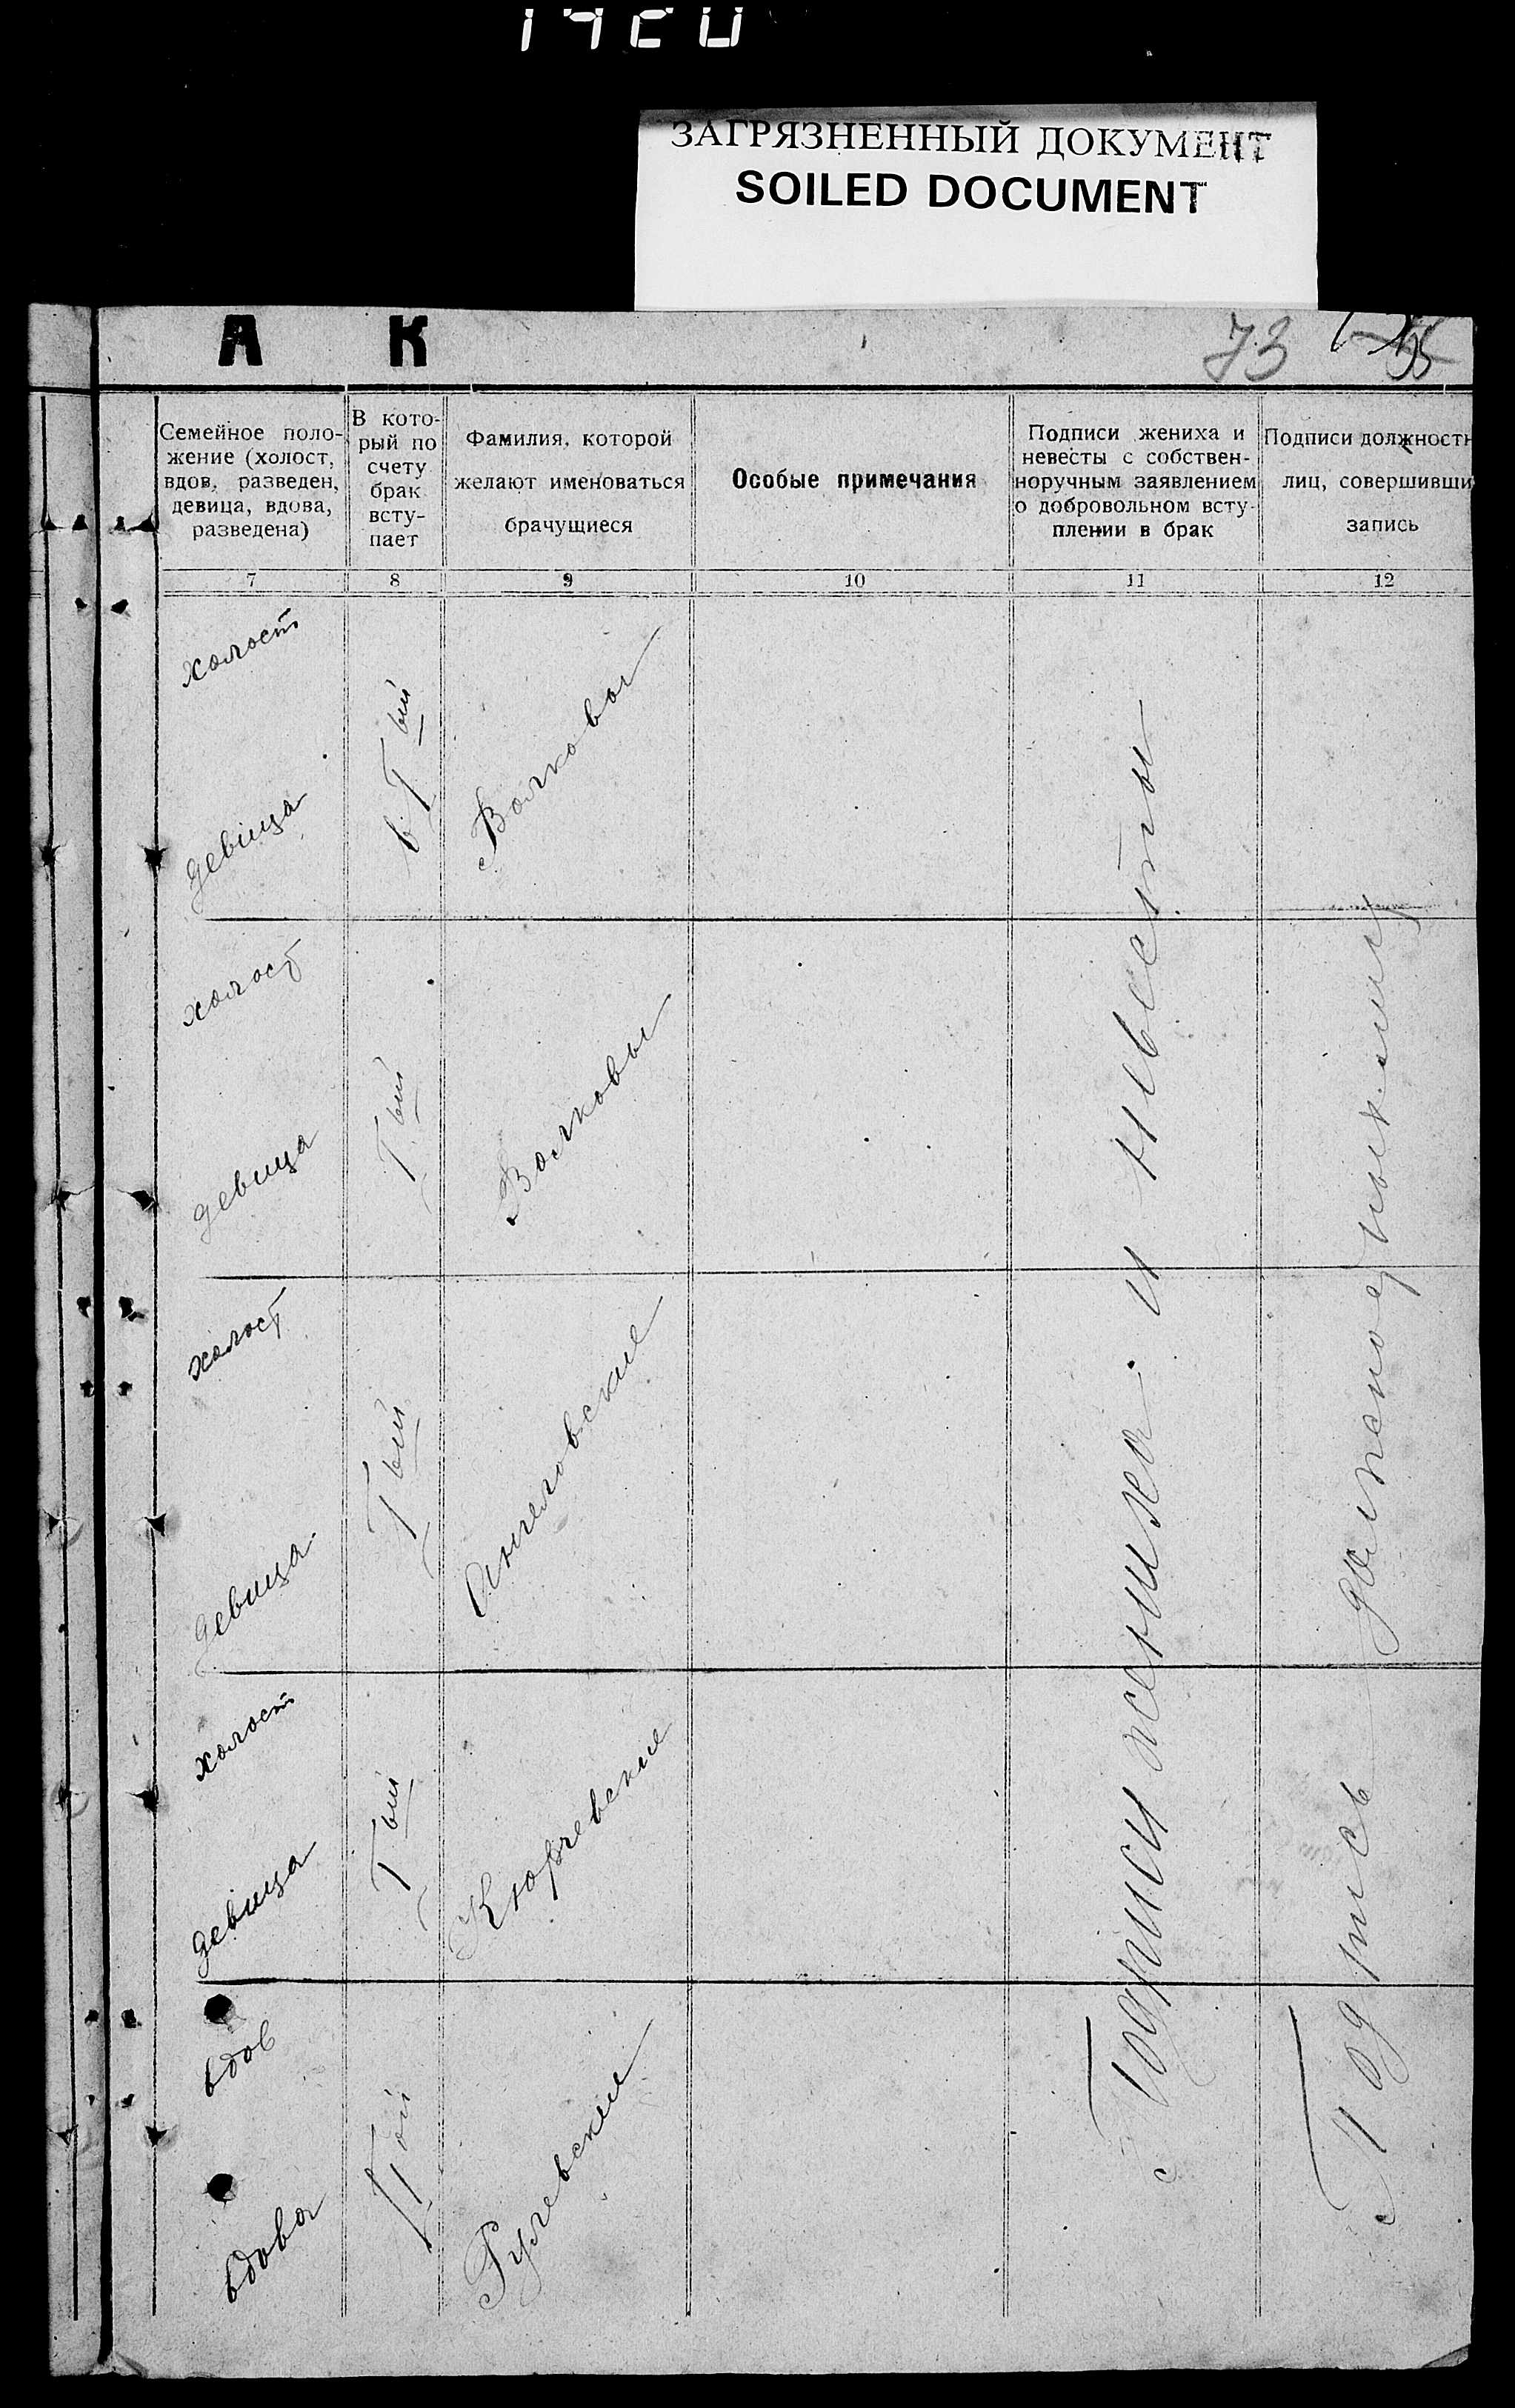 1920
ЗАГРЯЗНЕННЫЙ ДОКУМЕНТ
SOILED DOCUMENT
А К
73
Семейное поло-
жение (холост,
вдов, разведен,
девица, вдова,
разведена)
В кото-
рый по
счету
брак
всту-
пает
Фамилия, которой
желают именоваться
брачущиеся
Особые примечания
Подписи жениха и
невесты с собствен-
норучным заявлением
о добровольном всту-
плении в брак
Подписи должностн
лиц, совершивши
запись
7 8 9 10 11 12
холост
девица
в I ый
Волковы
холост
девица
I ый
Волковы
холост
девица
I ый
Ангеловские
холост
девица
I ый
Кюрчевские
вдов
вдова
II ой
Рулевские
Подписи жениха и невесты
Подпись